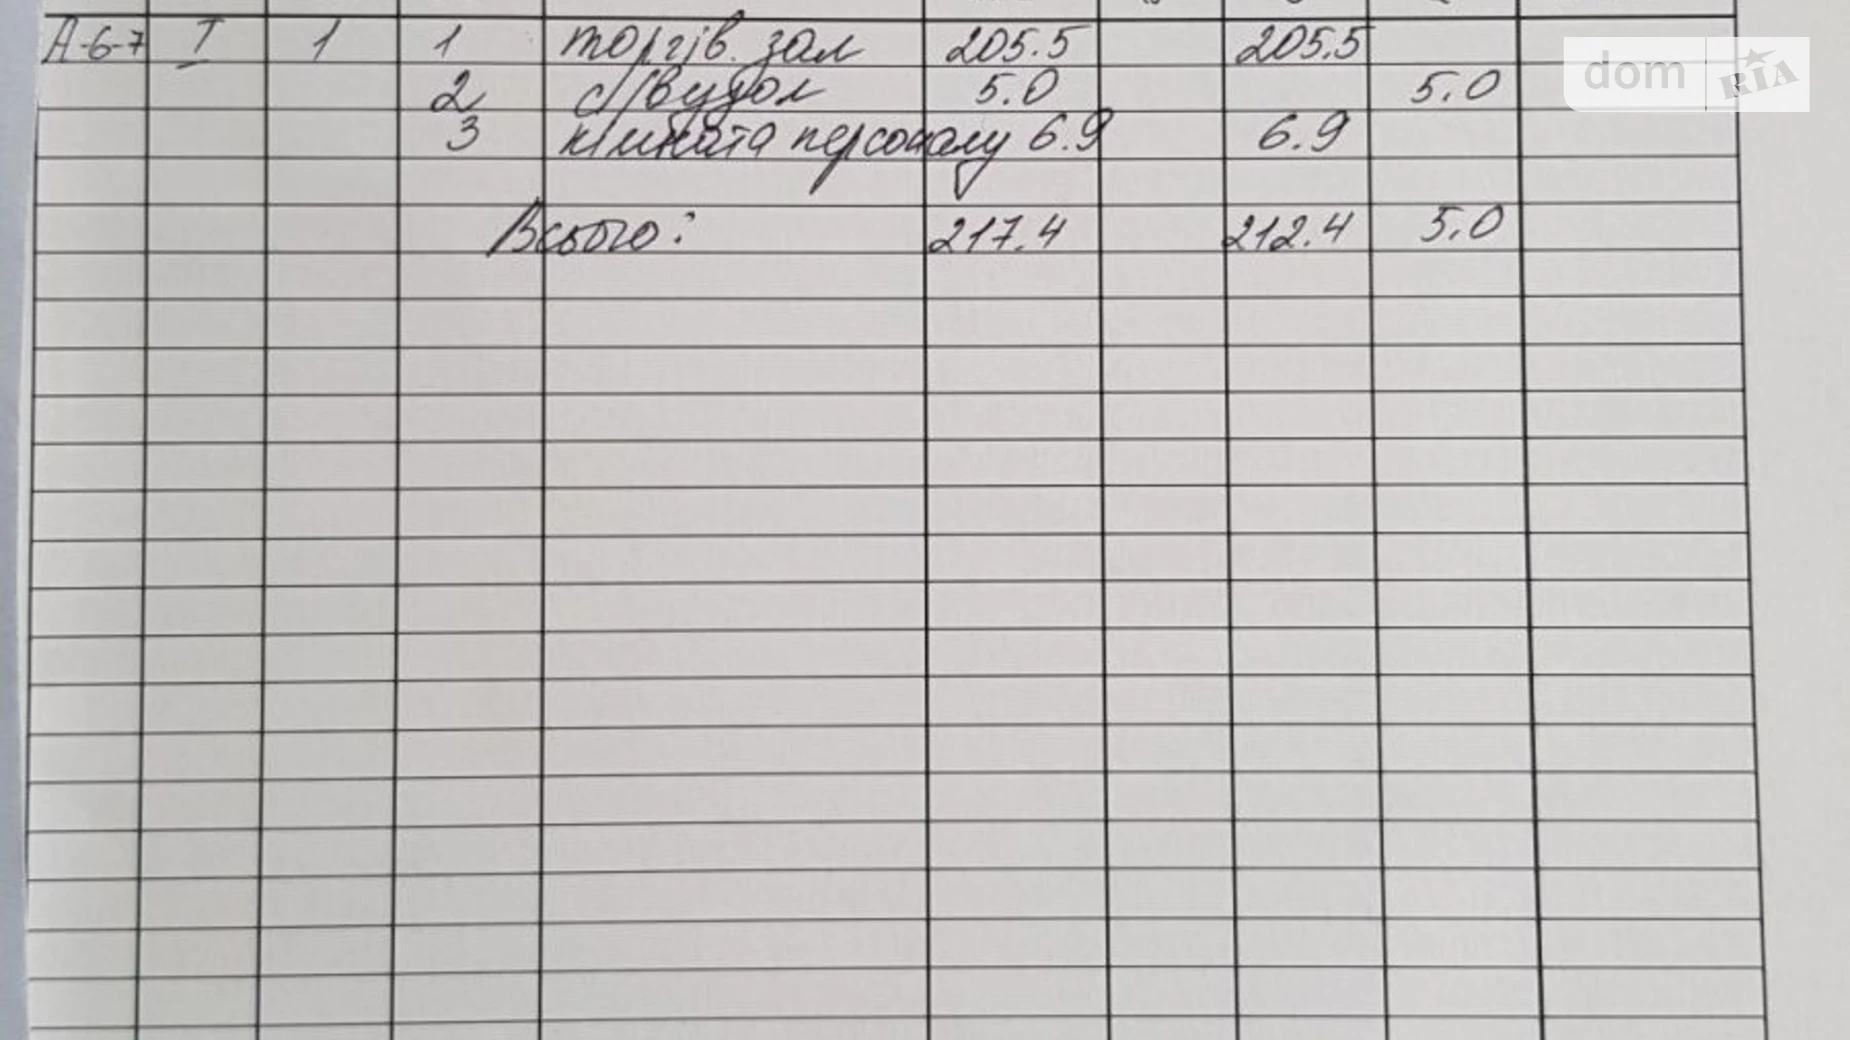 А-6-7 I 1 1 торгів. зал 205.5 205.5
2 с/вузол 5.0 5.0
3 кімната персоналу 6.9 6.9
Всього: 217.4 212.4 5.0
dom RIA